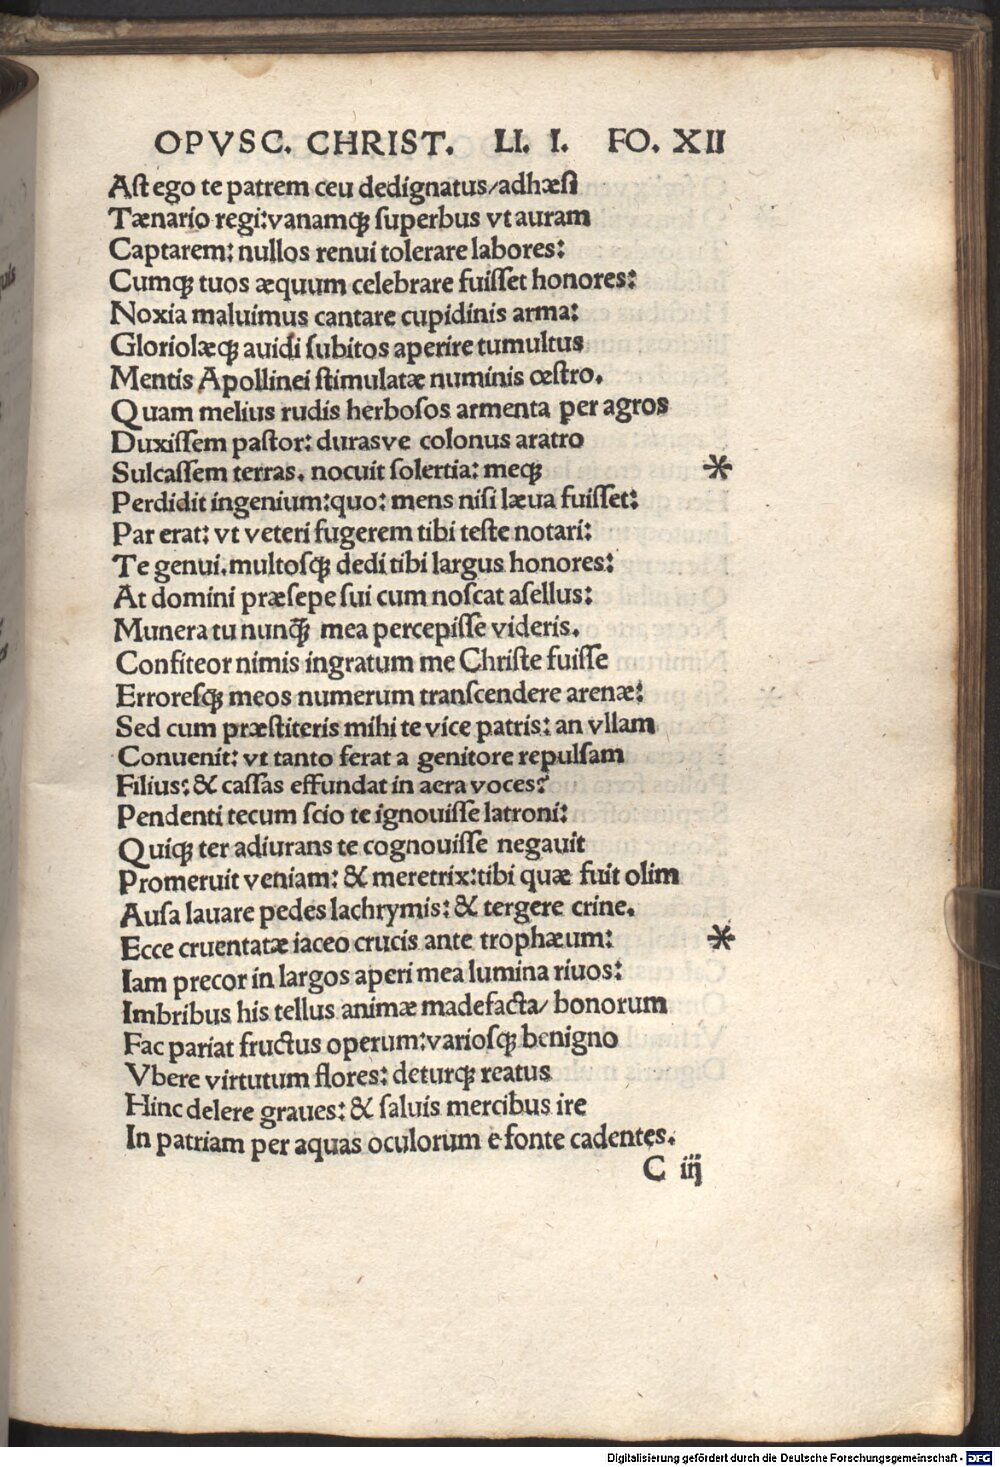 OPVSC. CHRIST. LI. I. FO. XII
Aſt ego te patrem ceu dedignatus/adhæſi
Tænario regi:vanamqꝫ ſuperbus vt auram
Captarem: nullos renui tolerare labores:
Cumqꝫ tuos æquum celebrare fuiſſet honores:
Noxia maluimus cantare cupidinis arma:
Gloriolæqꝫ auidi ſubitos aperire tumultus
Mentis Apollinei ſtimulatæ numinis œſtro.
Quam melius rudis herboſos armenta per agros
Duxiſſem paſtor: durasve colonus aratro
Sulcaſſem terras. nocuit ſolertia: meqꝫ *
Perdidit ingenium:quo: mens niſi læua fuiſſet:
Par erat: vt veteri fugerem tibi teſte notari:
Te genui.multoſqꝫ dedi tibi largus honores:
At domini præſepe ſui cum noſcat aſellus:
Munera tu nunqꝫ̃ mea percepiſſe videris.
Confiteor nimis ingratum me Chriſte fuiſſe
Erroreſqꝫ meos numerum tranſcendere arenæ:
Sed cum præſtiteris mihi te vice patris: an vllam
Conuenit: vt tanto ferat a genitore repulſam
Filius: & caſſas effundat in aera voces:
Pendenti tecum ſcio te ignouiſſe latroni:
Quiqꝫ ter adiurans te cognouiſſe negauit
Promeruit veniam: & meretrix:tibi quæ fuit olim
Auſa lauare pedes lachrymis: & tergere crine.
Ecce cruentatæ iaceo crucis ante trophæum: *
Iam precor in largos aperi mea lumina riuos:
Imbribus his tellus animæ madefacta/ bonorum
Fac pariat fructus operum:varioſqꝫ benigno
Vbere virtutum flores: deturqꝫ reatus
Hinc delere graues: & ſaluis mercibus ire
In patriam per aquas oculorum e fonte cadentes.
C iij
Digitalisierung gefördert durch die Deutsche Forschungsgemeinschaft - DFG